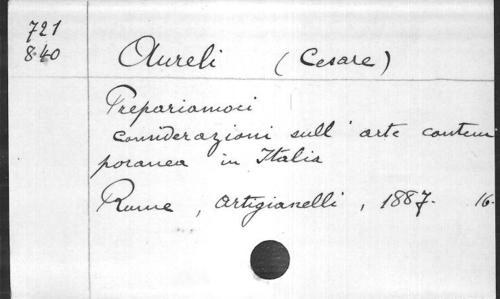 721
840
Aureli (Cesare)
Prepariamoci
considerazioni sull' arte contem
poranea in Italia
Rome, Artigianelli, 1887. 16-